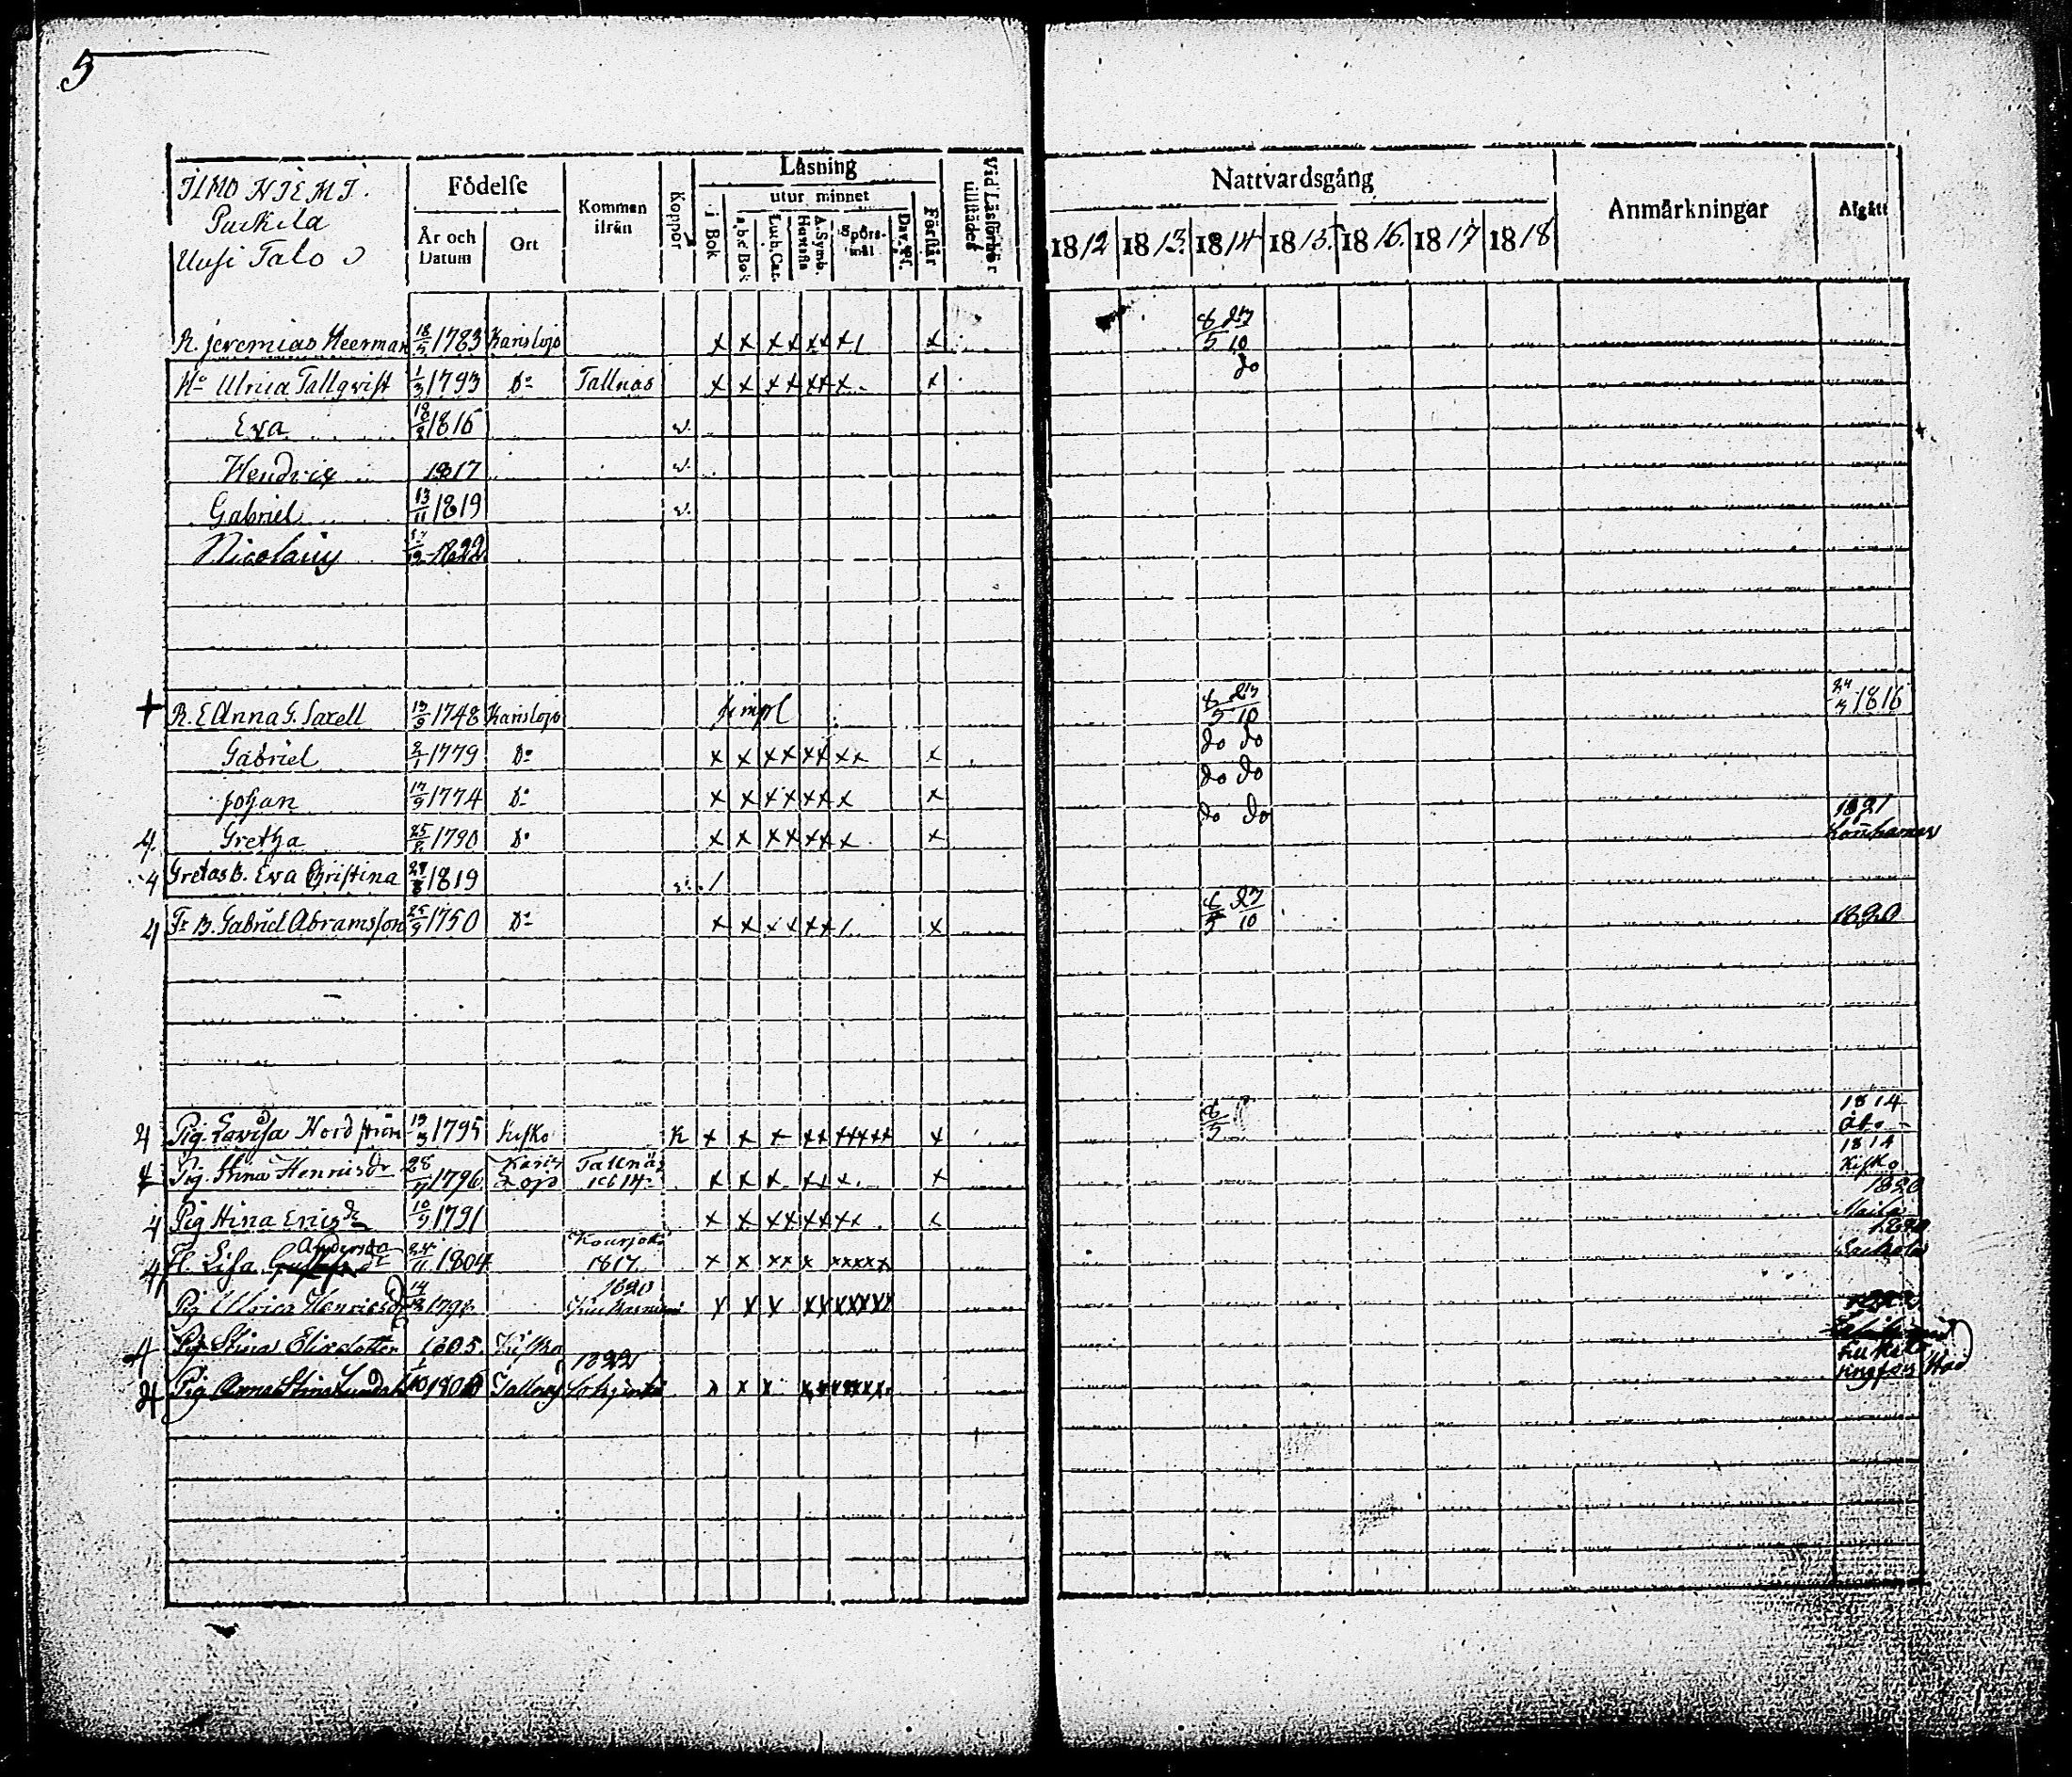 5
ILMO NIEMI.
Purkila
Uusi Talo
Födelse
År och Datum
Ort
Kommen ifrån
Koppor
Låsning
utur minnet
i Bok
a.b.c Bok
Luth. Cat.
A. Symb. Hustafla
Spörsmål
Dav. Ps.
Förstår
Vid Läsförhör tillstädes
Nattvardsgång
1812 1813. 1814 1815. 1816. 1817 1818
Anmärkningar
Afgått
R. Jeremias Heerman 18/5 1783 Karislojo x x x x x x x / x 8/5 23/10
Hu Ulrica Tallqvist 1/3 1793 Do Tallnäs x x x x x x x x do
Eva 1816 v.
Hendric 1817 v.
Gabriel 13/11 1819 v.
Nicolaus 1822
+ R. E Anna G. Saxell 13/9 1748 Karislojo simpl 8/5 23/10 24/4 1816
Gabriel 2/1 1779 Do x x x x x x x x x do do
Johan 17/9 1774 Do x x x x x x x x do do
4. Gretha 25/8 1790 Do x x x x x x x x do do 1821
4 Gretas B. Eva Christina 27/8 1819 v. /
4 Fr B. Gabriel Abramsson 25/9 1750 Do x x x x x x / x 8/5 23/10 1820
4 Pig. Lovisa Nordström 13/3 1795 Kisko K x x x x x x x x x x x 8/5 1814 Åbo
4 Pig. Stina Henricsdr 28/ 1796 Karis Lojo Tallnäs 1814 x x x x x x x 1814 Kisko
4 Pig Stina Ericsdr 10/9 1791 x x x x x x x x x 1820
4 Fl. Lisa Andersdr 24/11 1804 1817 x x x x x x x x x x
Pig Ulrica Henricsdr 14/ 1798 1820 x x x x x x x x x x
4 Pig Stina Elixdotter 1805. Kisko
4 Pig Anna Stina Lundahl 1/10 180 Tallnäs 1822 x x x x x x x x x till Helsingfors stad